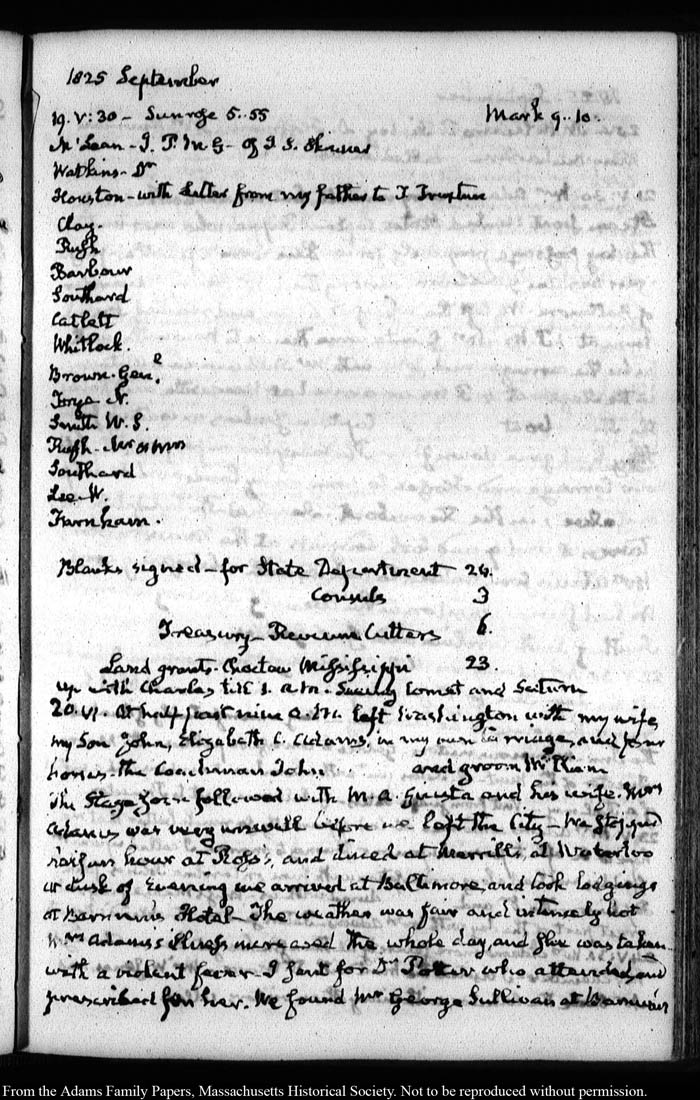 1825 September
19. V:30 - Sunrise 5..55 Mark 9..10.
McLean - J. P. M G - of J. S. Skinner
Watkins - Dr
Houston - with Letter from my father to J.
Clay.
Rush
Barbour
Southard
Catlett
Whitlock.
Brown. Genl.
Frye N.
Smith W. S.
Rush - Mr & Mrs
Southard
Lee W.
Farnham.
Blanks signed - for State Department 24.
Consuls 3
Treasury - Revenue Cutters 6.
Land grants. Choctaw Mississippi 23.
up with Charles till 1. a.m. Seeing Comet and Saturn
20. VI. At half past nine a.m. left Washington with my wife,
my Son John, Elizabeth C. Adams, in my own carriage, and four
horses. the Coachman John, and groom William
The Stage followed with M. A. Giusta and his wife. Mrs
Adams was very unwell before we left the City - We stopped
half an hour at Ross's, and dined at Merrill's at Waterloo
at dusk of Evening we arrived at Baltimore, and took lodgings
at Barnum's Hotel - The weather was fair and intensely hot
Mrs Adams's illness increased the whole day, and she was taken
with a violent fever. I sent for Dr Potter who attended, and
prescribed for her. We found Mr George Sullivan at Barnum's
From the Adams Family Papers, Massachusetts Historical Society. Not to be reproduced without permission.